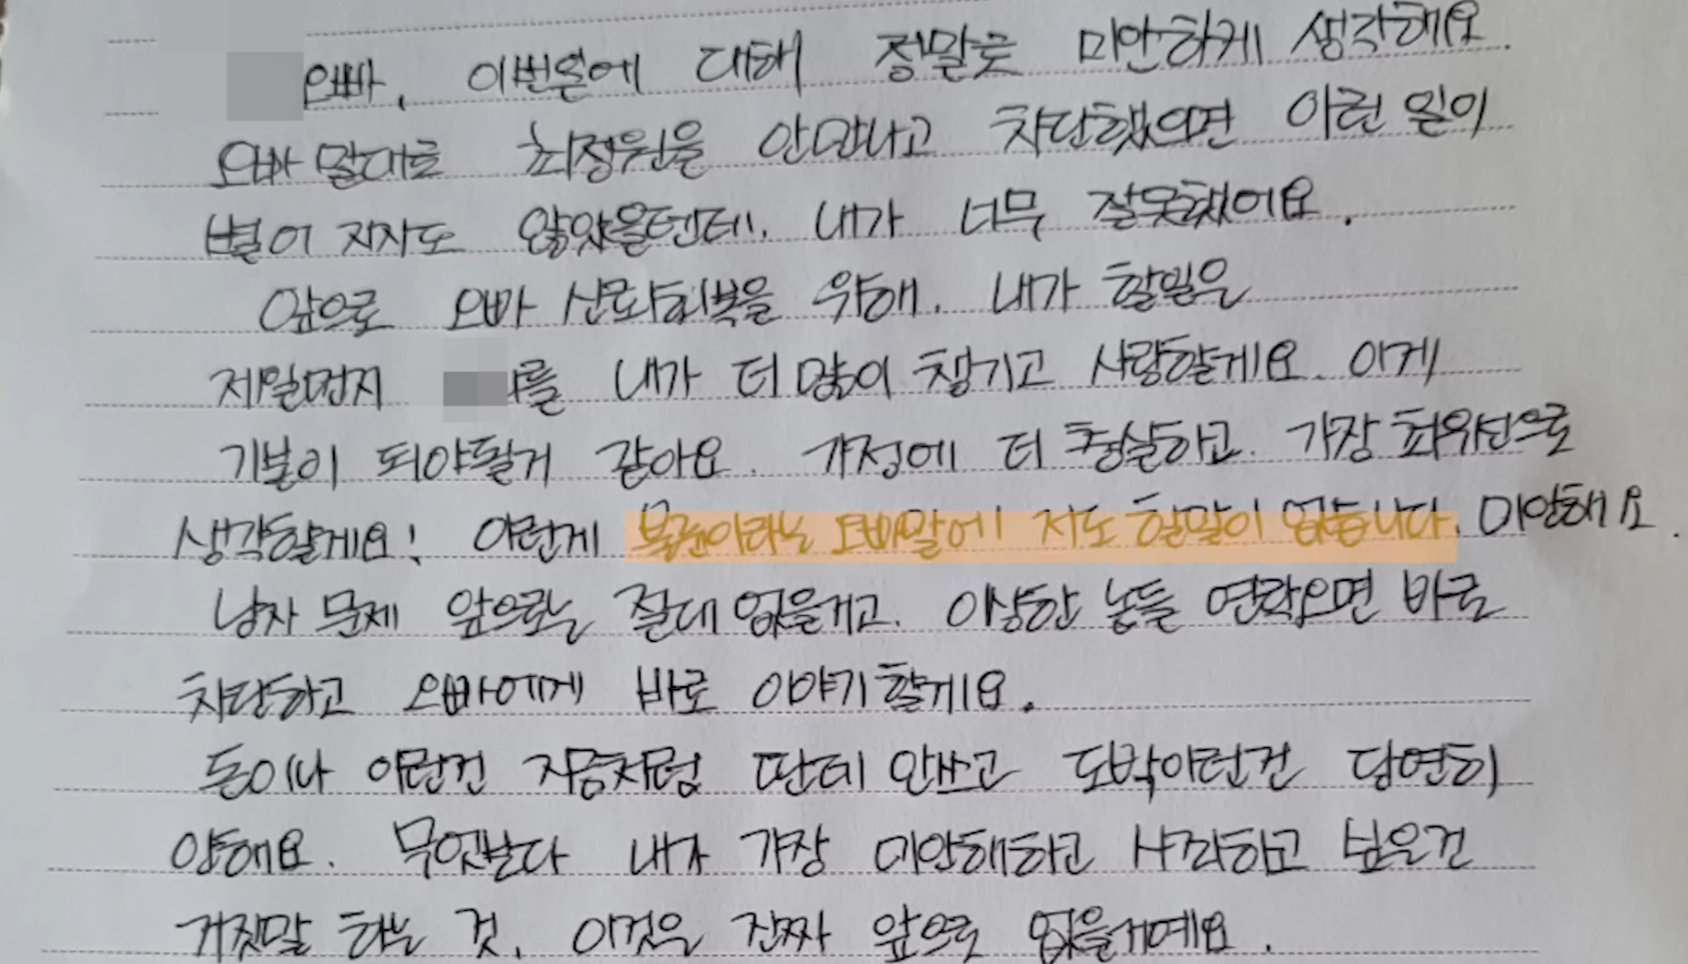 오빠, 이번일에 대해 정말로 미안하게 생각해요.
오빠 말대로 최정원을 안만나고 차단했으면 이런 일이
벌어 지지도 않았을텐데. 내가 너무 잘못했어요.
앞으로 오빠 신뢰회복을 위해. 내가 할일은
제일먼저 를 내가 더 많이 챙기고 사랑할게요. 이게
기본이 되야될거 같아요. 가정에 더 충실하고. 가장 최우선으로
생각할게요! 이런게 불륜이라는 오빠말에 저도 할말이 없습니다. 미안해요.
남자 문제 앞으로는 절대 없을거고. 이상한 놈들 연락오면 바로
차단하고 오빠에게 바로 이야기할게요.
돈이나 이런건 지금처럼 딴데 안쓰고 도박이런건 당연히
안해요. 무엇보다 내가 가장 미안해하고 사죄하고 싶은건
거짓말 하는 것. 이것은 진짜 앞으로 없을거예요.